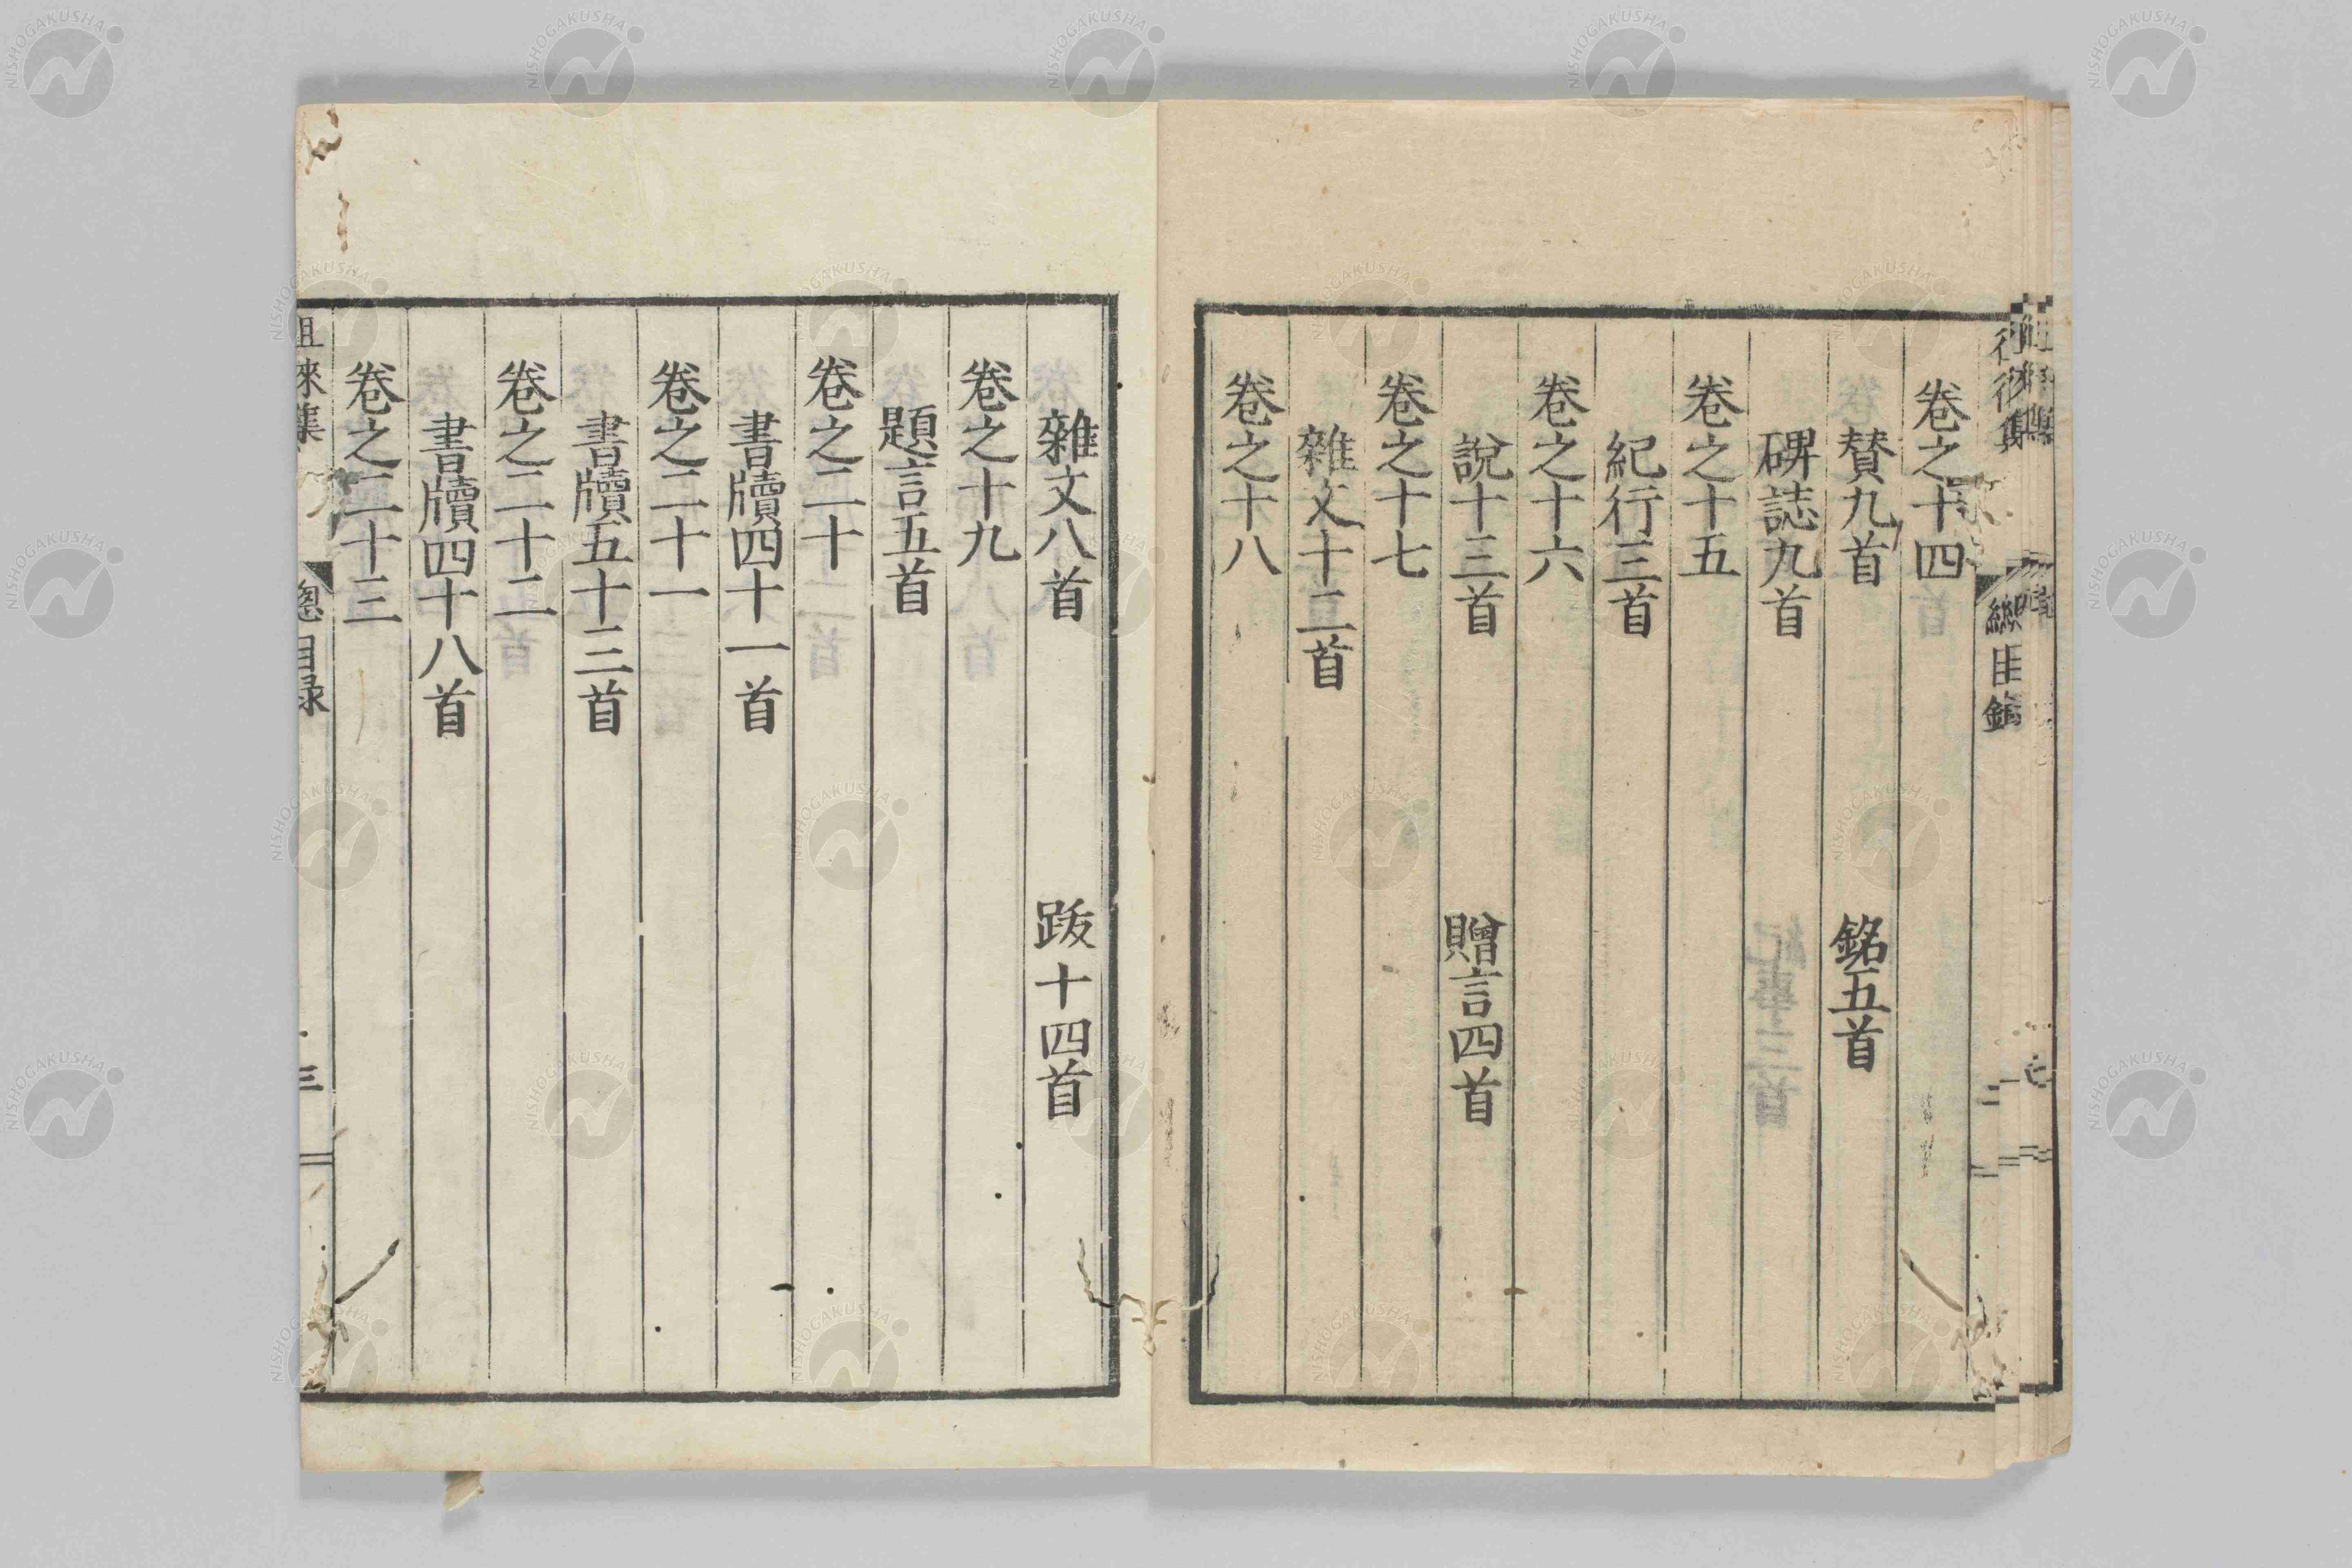 卷之十四
賛九首　銘五首
碑誌九首
卷之十五
紀行三首
卷之十六
說十三首　贈言四首
卷之十七
雜文十二首
卷之十八
雜文八首　跋十四首
卷之十九
題言五首
卷之二十
書牘四十一首
卷之二十一
書牘五十三首
卷之二十二
書牘四十八首
卷之二十三
徂徠集　總目録　三
NISHOGAKUSHA